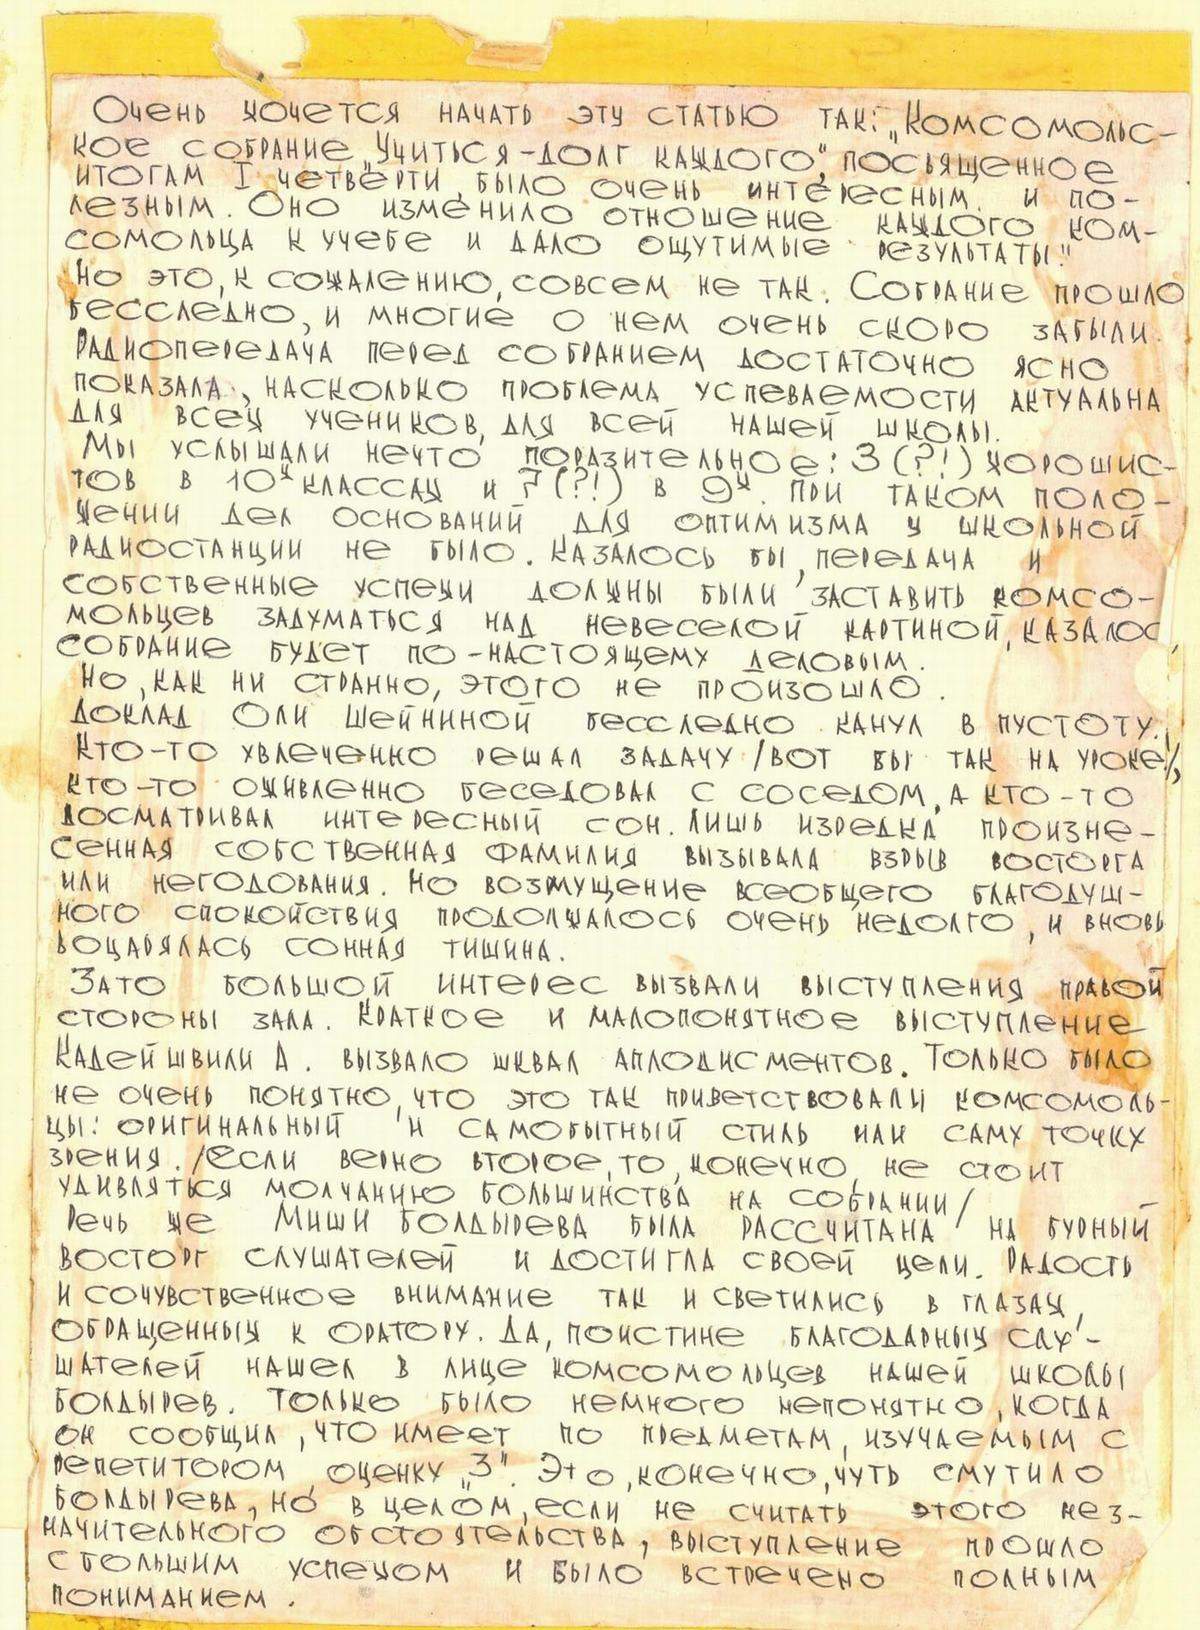 Очень хочется начать эту статью так: „Комсомольс-
кое собрание „Учиться – долг каждого", посвященное
итогам I четверти, было очень интересным и по-
лезным. Оно изменило отношение каждого ком-
сомольца к учебе и дало ощутимые результаты."
Но это, к сожалению, совсем не так. Собрание прошло
бесследно, и многие о нем очень скоро забыли.
Радиопередача перед собранием достаточно ясно
показала, насколько проблема успеваемости актуальна
для всех учеников, для всей нашей школы.
Мы услышали нечто поразительное: 3 (?!) хорошис-
тов в 10х классах и 7 (?!) в 9х. При таком поло-
жении дел оснований для оптимизма у школьной
радиостанции не было. Казалось бы, передача и
собственные успехи должны были заставить комсо-
мольцев задуматься над невеселой картиной, казалос
собрание будет по-настоящему деловым.
Но, как ни странно, этого не произошло.
Доклад Оли Шейниной бесследно канул в пустоту.
Кто-то увлеченно решал задачу /вот бы так на уроке!/,
кто-то оживленно беседовал с соседом, а кто-то
досматривал интересный сон. Лишь изредка произне-
сенная собственная фамилия вызывала взрыв восторга
или негодования. Но возмущение всеобщего благодуш-
ного спокойствия продолжалось очень недолго, и вновь
воцарялась сонная тишина.
Зато большой интерес вызвали выступления правой
стороны зала. Краткое и малопонятное выступление
Кадейшвили Д. вызвало шквал аплодисментов. Только было
не очень понятно, что это так приветствовали комсомоль-
цы: оригинальный и самобытный стиль или саму точку
зрения. /Если верно второе, то, конечно, не стоит
удивляться молчанию большинства на собрании/
Речь же Миши Болдырева была рассчитана на бурный
восторг слушателей и достигла своей цели. Радость
и сочувственное внимание так и светились в глазах,
обращенных к оратору. Да, поистине благодарных слу-
шателей нашел в лице комсомольцев нашей школы
Болдырев. Только было немного непонятно, когда
он сообщил, что имеет по предметам, изучаемым с
репетитором оценку „3". Это, конечно, чуть смутило
Болдырева, но в целом, если не считать этого нез-
начительного обстоятельства, выступление прошло
с большим успехом и было встречено полным
пониманием.